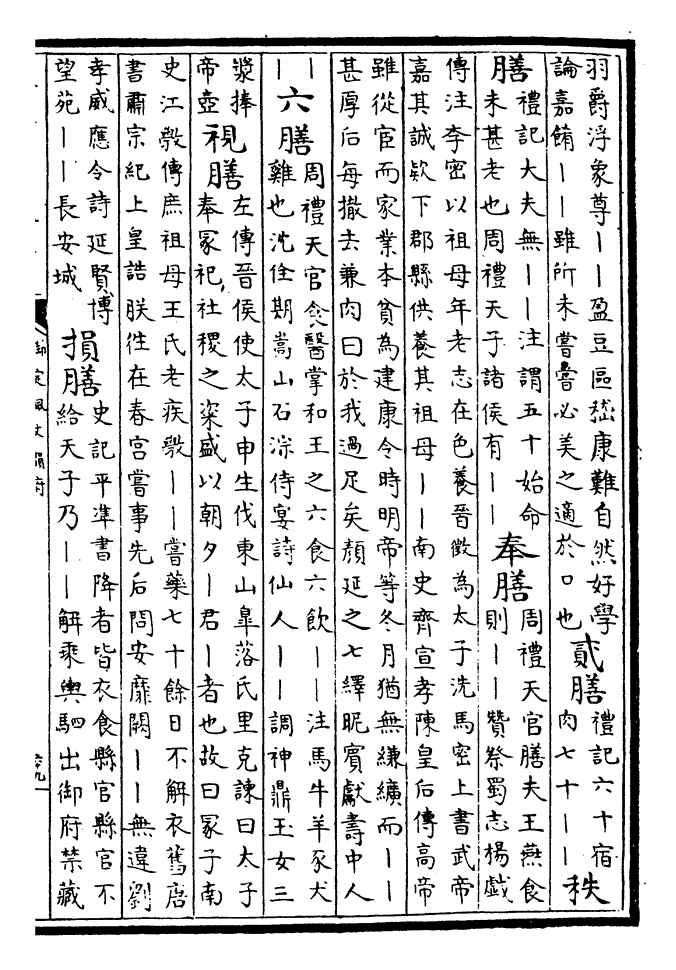 羽爵浮象尊丨丨盈豆區嵇康難自然好學
論嘉餚丨丨雖所未嘗嘗必美之適於口也
貳膳
禮記六十宿
肉七十丨丨
秩
膳
禮記大夫無丨丨注謂五十始命
未甚老也周禮天子諸侯有丨丨
奉膳
周禮天官膳夫王燕食
則丨丨贊祭蜀志楊戲
傳注李密以祖母年老志在色養晉徵為太子洗馬密上書武帝
嘉其誠欵下郡縣供養其祖母丨丨南史齊宣孝陳皇后傳高帝
雖從宦而家業本貧為建康令時明帝等冬月猶無縑纊而丨丨
甚厚后每撤去兼肉曰於我過足矣顔延之七繹昵賓獻壽中人
丨
丨
六膳
周禮天官食醫掌和王之六食六飲丨丨注馬牛羊豕犬
雞也沈佺期嵩山石淙侍宴詩仙人丨丨調神鼎玉女三
漿捧
帝壺
視膳
左傳晉侯使太子申生伐東山臯落氏里克諫曰太子
奉冢祀社稷之粢盛以朝夕丨君丨者也故曰冢子南
史江斆傳庶祖母王氏老疾斆丨丨嘗藥七十餘日不解衣舊唐
書肅宗紀上皇誥朕徃在春宫嘗事先后問安靡闕丨丨無違劉
孝威應令詩延賢博
望苑丨丨長安城
損膳
史記平準書降者皆衣食縣官縣官不
給天子乃丨丨解乘輿駟出御府禁藏
御定佩文韻府